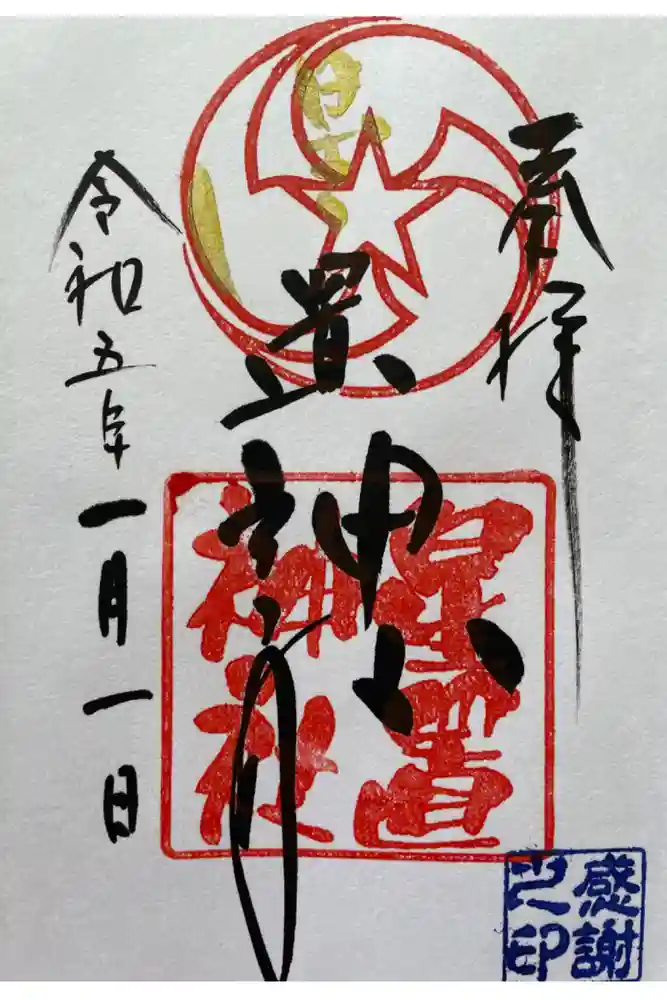 奉拝
星置神社
星置神社
令和五年一月一日
感謝之印